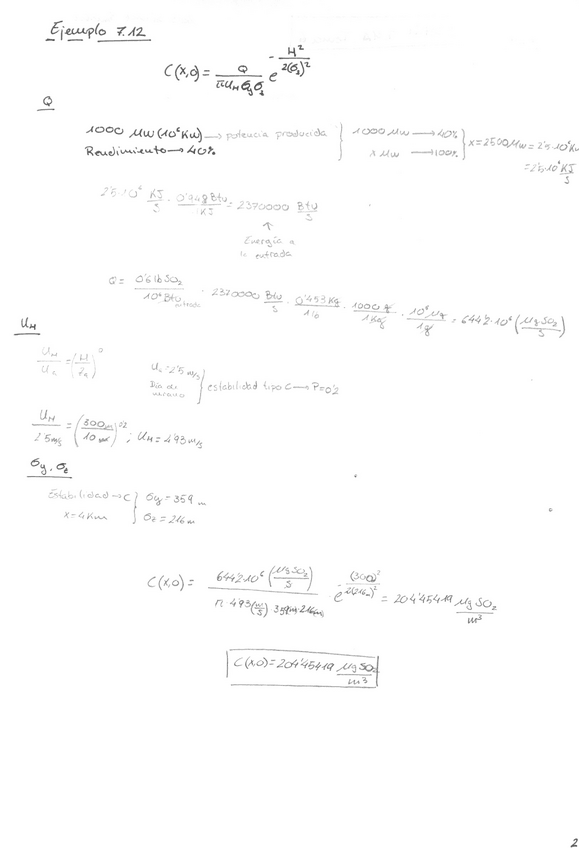 Ejemplo 7.12
C(x,0) = Q / (π u_H σ_y σ_z) e^(-H²/2(σ_z)²)
Q
1000 MW (10⁶ Kw) → potencia producida } 1000 MW → 40% } x = 2500 MW = 2'5·10⁶ Kw
Rendimiento → 40% x MW → 100% = 2'5·10⁶ KJ/s
2'5·10⁶ KJ/s · 0'948 Btu/1KJ = 2370000 Btu/s
↑
Energía a
la entrada
Q = 0'6 lb SO₂/10⁶ Btu entrada · 2370000 Btu/s · 0'453 Kg/1 lb · 1000 g/1 Kg · 10⁶ μg/1g = 644'2·10⁶ (μg SO₂/s)
U_H
U_H/U_a = (H/z_a)^P
U_a = 2'5 m/s
Día de verano } estabilidad tipo C → P = 0'2
U_H/2'5 m/s = (300 m/10 m)^0'2 ; U_H = 4'93 m/s
σy, σz
Estabilidad → C } σy = 359 m
x = 4 Km } σz = 216 m
C(x,0) = 644'2·10⁶ (μg SO₂/s) / (π · 4'93 (m/s) · 359 m · 216 m) e^(-(300)²/2(216 m)²) = 204'45419 μg SO₂/m³
C(x,0) = 204'45419 μg SO₂/m³
2